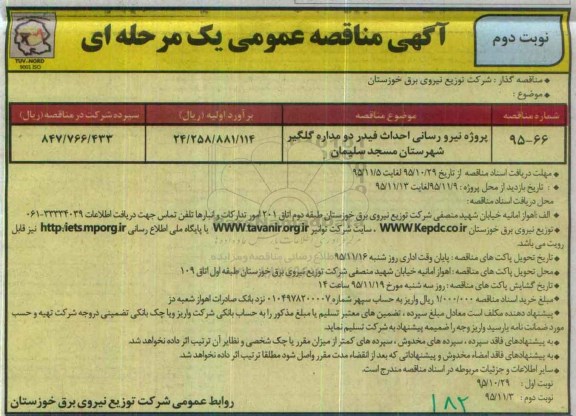 آگهی مناقصه عمومی یک مرحله ای
نوبت دوم
TUV-NORD
مناقصه گذار : شرکت توزیع نیروی برق خوزستان
موضوع :
شماره مناقصه موضوع مناقصه برآورد اولیه (ریال) سپرده شرکت در مناقصه (ریال)
۹۵-۶۶ پروژه نیرو رسانی احداث فیدر دو مداره گلگیر شهرستان مسجد سلیمان ۲۴/۲۵۸/۸۸۱/۱۱۴ ۸۴۷/۷۶۶/۴۳۳
مهلت دریافت اسناد مناقصه از تاریخ ۹۵/۱۰/۲۹ لغایت ۹۵/۱۱/۵
تاریخ بازدید از محل پروژه : ۹۵/۱۱/۹ لغایت ۹۵/۱۱/۱۳
محل دریافت اسناد مناقصه:
الف :اهواز امانیه خیابان شهید منصفی شرکت توزیع نیروی برق خوزستان طبقه دوم اتاق ۲۰۱ امور تدارکات و انبارها تلفن تماس جهت دریافت اطلاعات ۳۳۳۳۴۰۳۹-۰۶۱
توزیع نیروی برق خوزستان WWW.Kepdc.co.ir ، سایت شرکت توانیر WWW.tavanir.org.ir یا پایگاه ملی اطلاع رسانی http:iets.mporg.ir نیز قابل
رویت می باشد.
تاریخ تحویل پاکت های مناقصه : پایان وقت اداری روز شنبه ۹۵/۱۱/۱۶
محل تحویل پاکت های مناقصه: اهواز امانیه خیابان شهید منصفی شرکت توزیع نیروی برق خوزستان طبقه اول اتاق ۱۰۹
تاریخ گشایش پاکت های مناقصه : روز سه شنبه مورخ ۹۵/۱۱/۱۹ ساعت ۱۴
مبلغ خرید اسناد مناقصه ۱/۰۰۰/۰۰۰ ریال واریز به حساب سپهر شماره ۰۱۰۴۹۷۸۲۰۰۰۰۷ نزد بانک صادرات اهواز شعبه دز
پیشنهاد دهنده مکلف است معادل مبلغ سپرده ، تضمین های معتبر تسلیم یا مبلغ مذکور را به حساب بانکی شرکت واریز ویا چک بانکی تضمینی دروجه شرکت تهیه و حسب
مورد ضمانت نامه یارسید واریز وجه را ضمیمه پیشنهاد به شرکت تسلیم نماید.
به پیشنهادهای فاقد سپرده ، سپرده های مخدوش ، سپرده های کمتر از میزان مقرر یا چک شخصی و نظایر آن ترتیب اثر داده نخواهد شد.
به پیشنهاد های فاقد امضاء مخدوش و پیشنهاداتی که بعد از انقضاء مدت مقرر واصل شود مطلقا ترتیب اثر داده نخواهد شد.
سایر اطلاعات و جزئیات مربوطه در اسناد مناقصه مندرج است.
نوبت اول : ۹۵/۱۰/۲۹
نوبت دوم : ۹۵/۱۱/۳
۱۸۲
روابط عمومی شرکت توزیع نیروی برق خوزستان